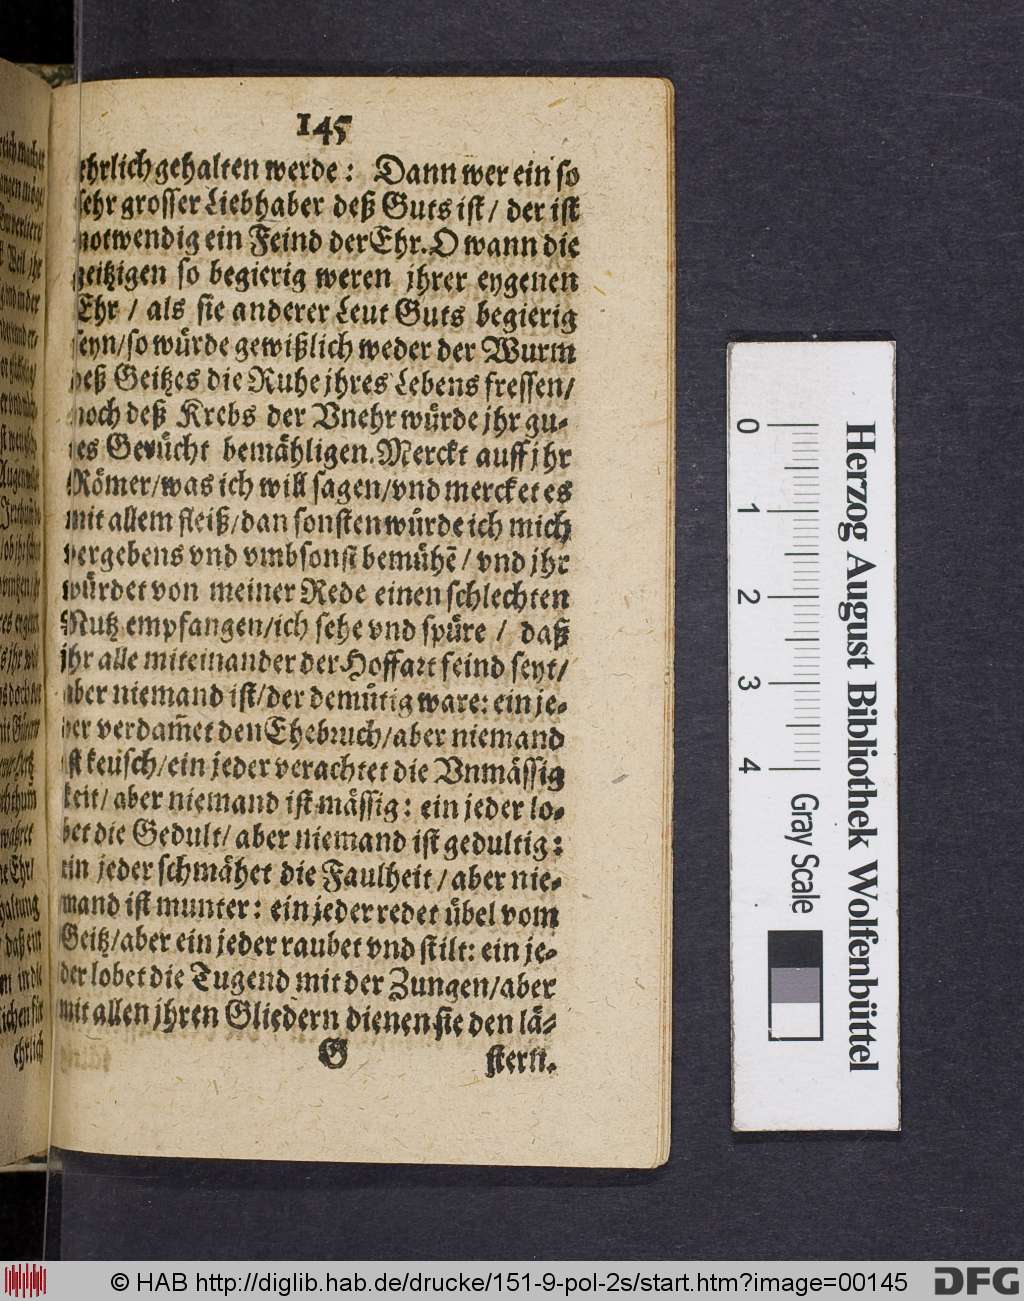 145
ehrlich gehalten werde: Dann wer ein so
sehr grosser Liebhaber deß Guts ist / der ist
notwendig ein Feind der Ehr. O wann die
geitzigen so begierig weren jhrer eygenen
Ehr / als sie anderer Leut Guts begierig
seyn/so würde gewißlich weder der Wurm
deß Geitzes die Ruhe jhres Lebens fressen/
noch deß Krebs der Vnehr würde jhr gu-
tes Gerücht bemähligen. Merckt auff jhr
Römer/was ich will sagen/vnd mercket es
mit allem fleiß/dan sonsten würde ich mich
vergebens vnd vmbsonst bemühē / vnd jhr
würdet von meiner Rede einen schlechten
Nutz empfangen/ich sehe vnd spüre / daß
jhr alle miteinander der Hoffart feind seyt/
aber niemand ist/der demütig ware: ein je-
der verdam̄et den Ehebruch/aber niemand
ist keusch/ein jeder verachtet die Vnmässig
keit/aber niemand ist mässig: ein jeder lo-
bet die Gedult/ aber niemand ist gedultig:
ein jeder schmähet die Faulheit / aber nie-
mand ist munter: ein jeder redet übel vom
Geitz/aber ein jeder raubet vnd stilt: ein je-
der lobet die Tugend mit der Zungen/aber
mit allen jhren Gliedern dienen sie den lä-
G stern.
ehrlich
0 1 2 3 4
Gray Scale
Herzog August Bibliothek Wolfenbüttel
© HAB http://diglib.hab.de/drucke/151-9-pol-2s/start.htm?image=00145
DFG